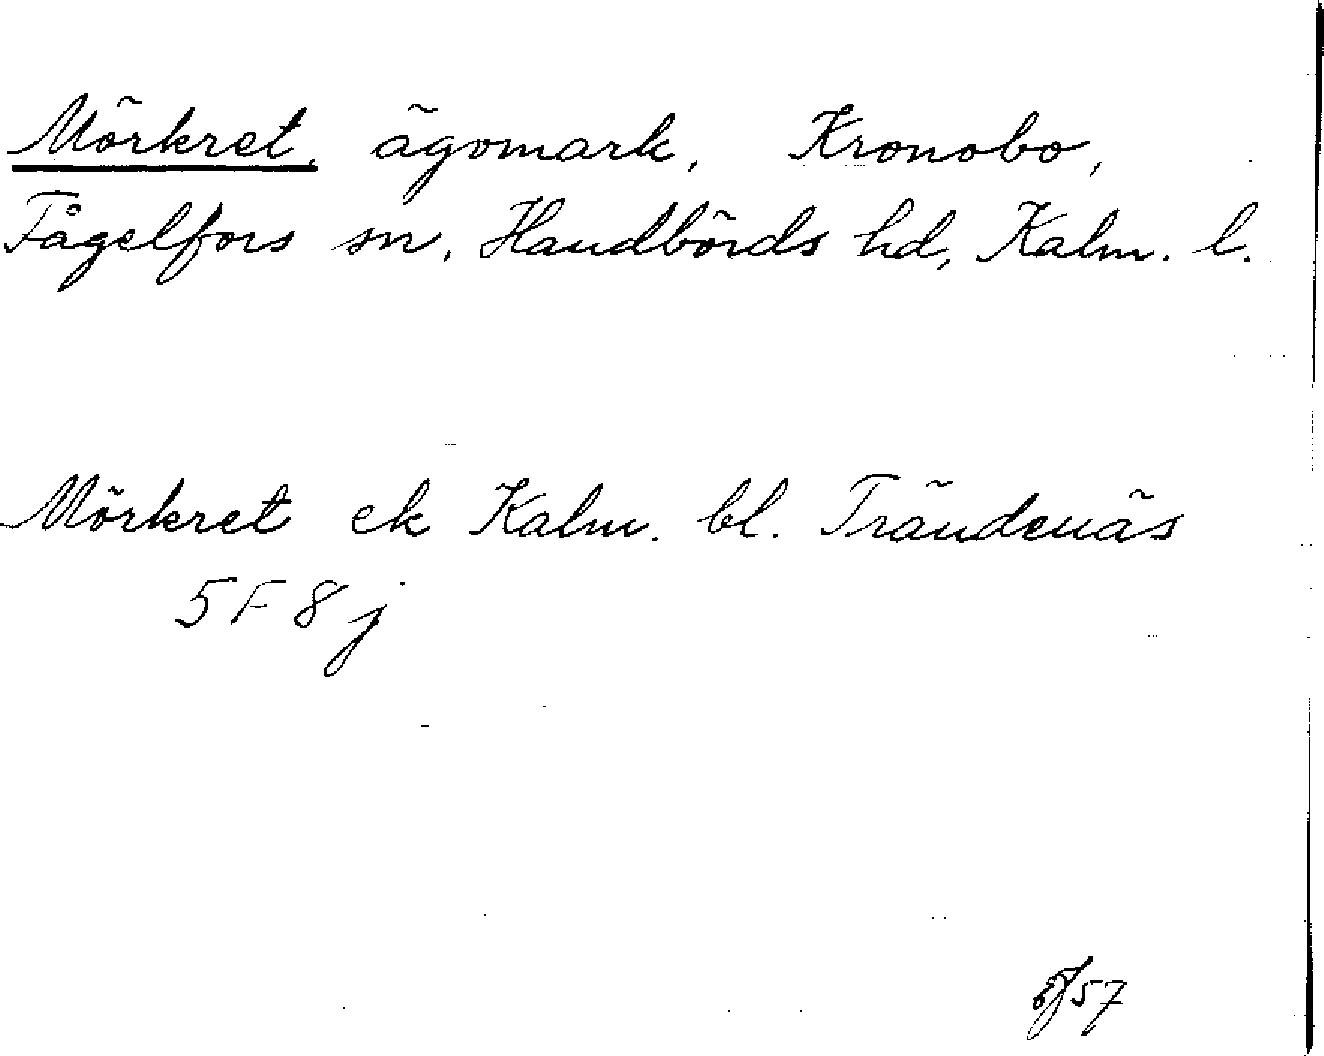 Mörkret, ägomark, Kronobo,
Fågelfors sn, Handbörds hd, Kalm. l.
Mörkret ek Kalm. bl. Trändenäs
5F 8j
57